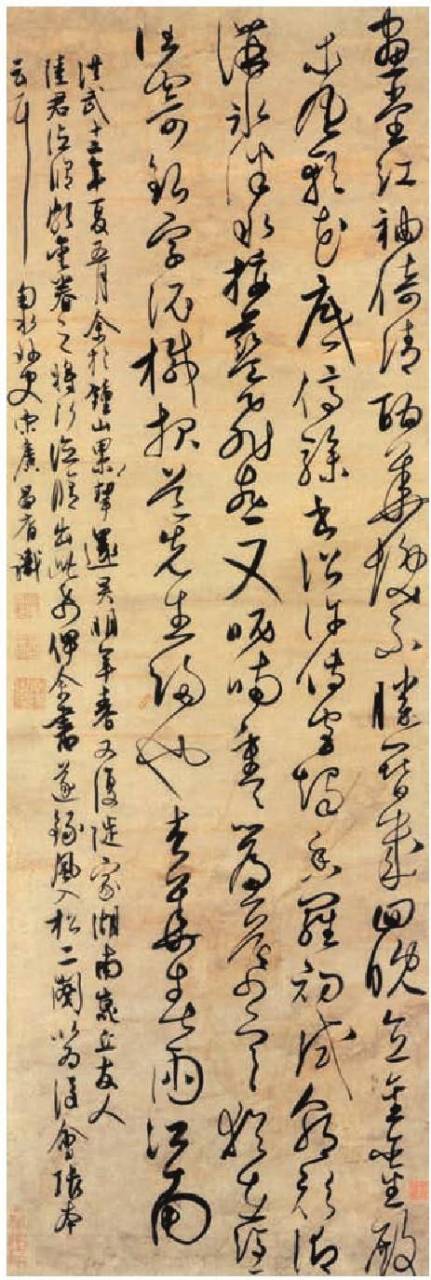 畫堂紅袖倚清酣華髮不勝簪幾回晚立金鑾殿
東風軟花底停驂書詔許傳宮燭香羅初試朝衫御
溝冰泮水挼藍飛燕又呢喃重重簾幕寒猶在憑
誰寄銀字泥緘報道先生歸也杏花春雨江南
洪武十三年夏五月余於鍾山畢還吳明年春又復從家湖南友人
陸君頗重眷之將行出此紙俾余書遂錄風入松二闋以為後會張本
云耳 東海史宋廣昌裔識